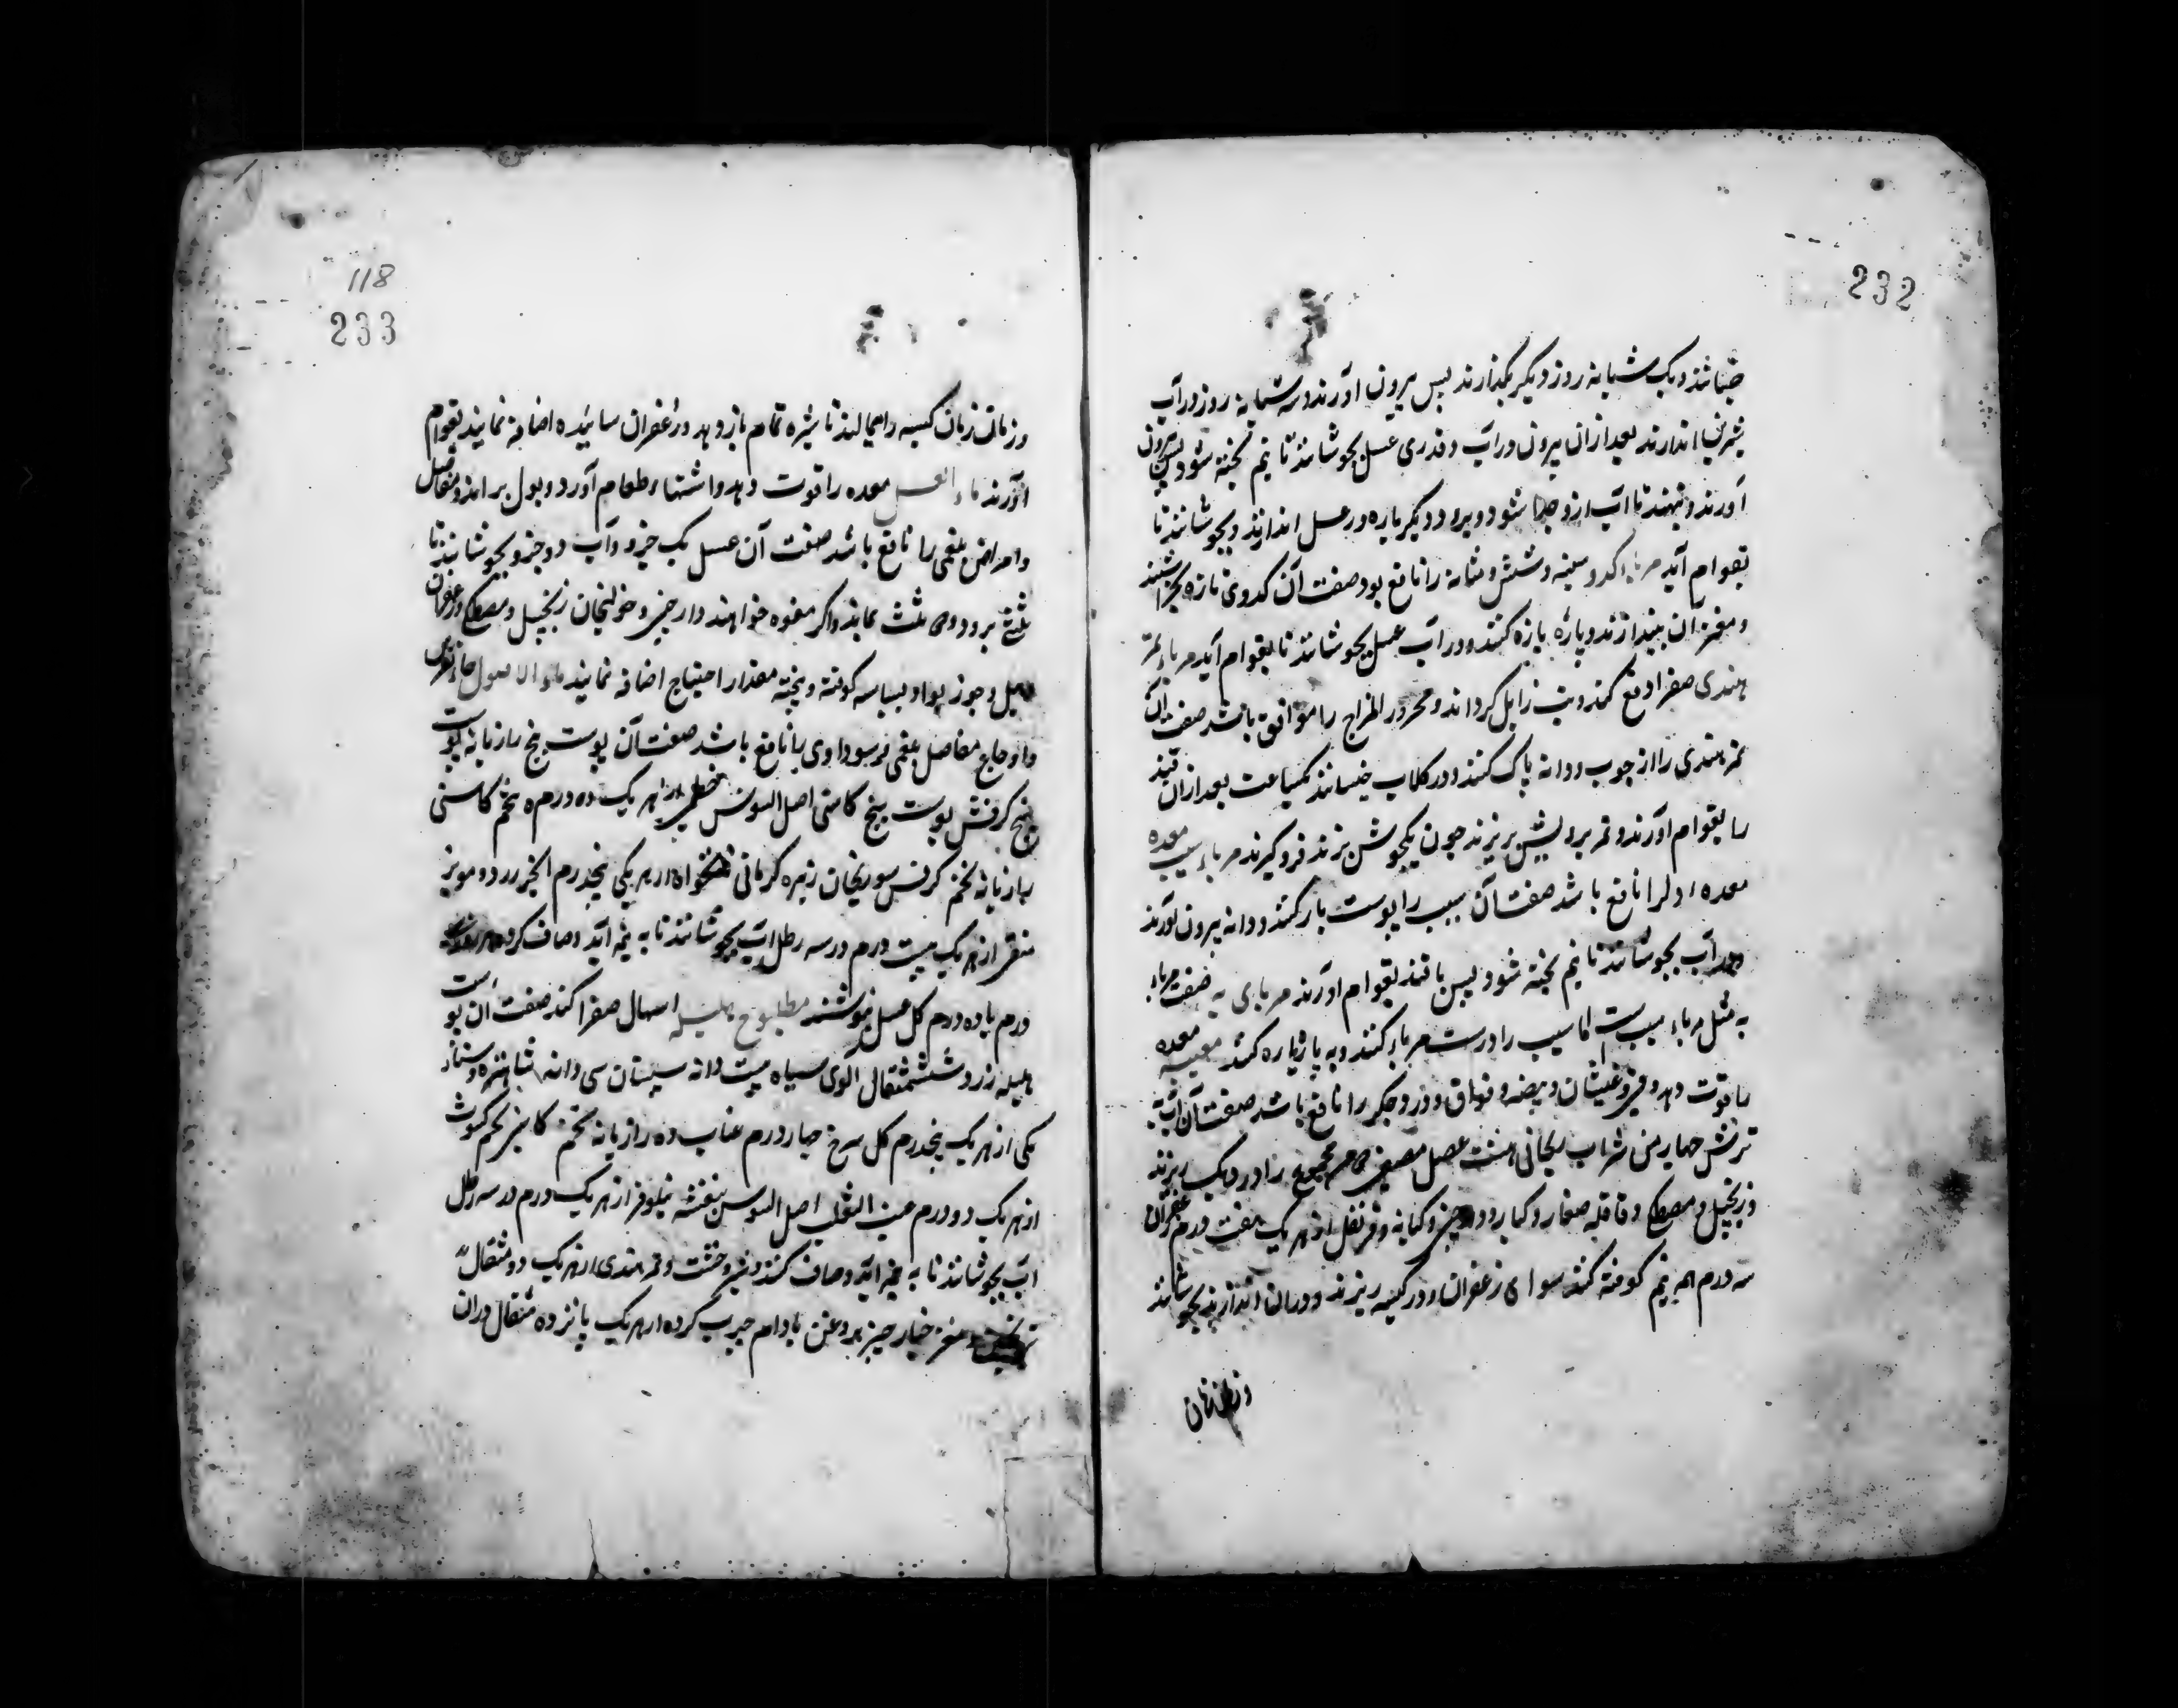 232
خیسانند و یک شبانه روز دیکر بکذارند پس بیرون اورند و سه شبانه روز در آب
شیرین اندازند بعد ازان بیرون درآب و قدری عسل بجوشانند تا نیم پخته شود پس بیرون
آورند و بنهند تا اب ازو جدا شود و برود دیکر باره در عسل اندازند و بجوشانند تا
بقوام آید مرباء کدو سینه و شش و مثانه را نافع بود صفت آن کدوی تازه بخراشند
و مغز ان بیندازند و پاره پاره کنند و در آب عسل بجوشانند تا بقوام آید مرباء تمر
هندی صفرا دفع کند و تب زایل کرداند و محرور المزاج را موافق باشد صفت ان
تمر هندی را از چوب و دانه پاک کنند و در کلاب خیسانند یکساعت بعد ازان قند
را بقوام اورند و تمر برویش بریزند چون یکجوش بزند فرو کیرند مرباء سیب معده
معده و دلرا نافع باشد صفت آن سیب را پوست باز کنند و دانه بیرون آورند
و در آب بجوشانند تا نیم پخته شود پس با قند بقوام اورند مربای به صفت مرباء
به مثل مرباء سیب ست اما سیب را درست مربا کنند و به پاره پاره کنند میبه معده
را قوت دهد و قی و غثیان و هیضه و فواق و درد جکر را نافع باشد صفت آن آب به
ترش چهار من شراب ریحانی هشت عسل مصفی مجموع را در دیک ریزند
و زنجبیل و مصطکی و قاقله صغار و کبار و دارچینی و کبابه و قرنفل از هر یک هفت درم زعفران
سه درم همه نیم کوفته کنند سوای زعفران و در کیسه ریزند و دران اندازند بجوشانند
و زمان زمان
118
233
و زمان زمان کیسه را همی مالند تا شیره تمام باز دهد و زعفران سائیده اضافه نمایند بقوام
اورند ماء العسل معده را قوت دهد و اشتهاء طعام آورد و بول براند و مفاصل
و امراض بلغمی را نافع باشد صفت آن عسل یک جزو و آب دو جزو بجوشانند تا
ثلثی برود و دو ثلث بماند و اکر مفوه خواهند دارچینی و خولنجان زنجبیل و مصطکی و زعفران
هیل و جوز بوا و بسباسه کوفته و بیخته مقدار احتیاج اضافه نمایند ماء الاصول
و اوجاع مفاصل بلغمی و سوداوی را نافع باشد صفت آن پوست بیخ رازیانه پوست
بیخ کرفش پوست بیخ کاسنی اصل السوس خطمی از هر یک ده درم تخم کاسنی
رازیانه تخم کرفس سورنجان زیره کرمانی نانخواه از هر یکی پنجدرم انجیر زرد و مویز
منقی از هر یک بیست درم در سه رطل آب بجوشانند تا به نیمه آید و صاف کرده
درم با ده درم کل عسل بنوشند مطبوخ هلیله اسهال صفرا کند صفت ان پوست
هلیله زرد شش مثقال آلوی سیاه بیست دانه سپستان سی دانه شاهتره و سناء
مکی از هر یک پنجدرم کل سرخ چهار درم عناب ده رازیانه تخم کاسنی تخم کشوث
از هر یک دو درم عنب الثعلب اصل السوس بنفشه نیلوفر از هر یک درم در سه رطل
اب بجوشانند تا به نیمه آید و صاف کنند و شیر خشت و تمر هندی از هر یک ده مثقال
ترنجبین و مغز خیار چنبر بروغن بادام چرب کرده از هر یک پانزده مثقال دران